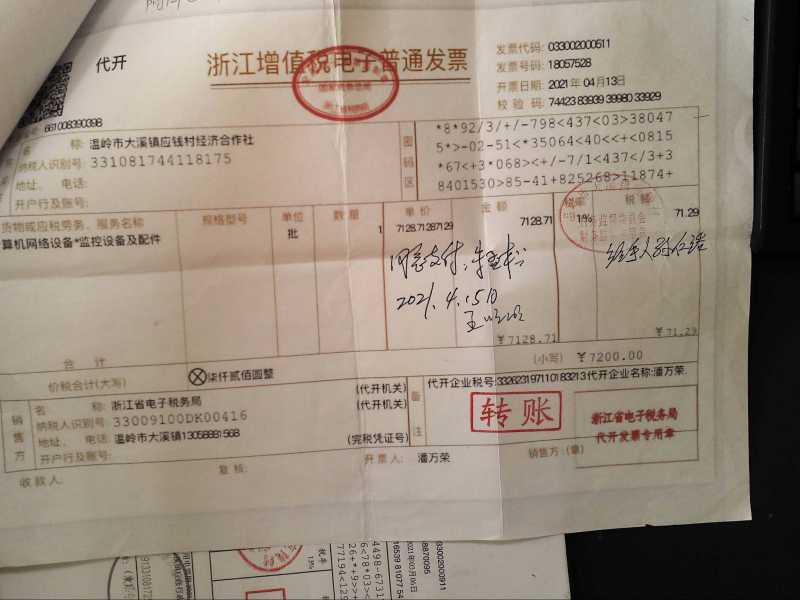 代开
浙江增值税电子普通发票
发票代码: 033002000511
发票号码: 18057528
开票日期: 2021年 04月13日
校 验 码: 74423 83939 39980 33929
661008390398
称: 温岭市大溪镇应钱村经济合作社
纳税人识别号: 331081744118175
地址、 电话:
开户行及账号:
密码区
*8*92/3/+/-798<437<03>38047
5*>-02-51<*35064<40<<+<0815
*67<+3*068><+/-7/1<437</3+3
8401530>85-41+825268>11874+
货物或应税劳务、服务名称 规格型号 单位 数量 单价 金额 税率 税额
算机网络设备*监控设备及配件 批 1 7128.71287129 7128.71 1% 71.29
同意支付
2021.4.15日
经手人
合 计 ¥7128.71 ¥71.29
价税合计(大写) ⊗柒仟贰佰圆整 (小写) ¥7200.00
销售方
名 称: 浙江省电子税务局 (代开机关)
纳税人识别号: 33009100DK00416 (代开机关)
地址、 电话: 温岭市大溪镇13058881568
开户行及账号: (完税凭证号)
备注
代开企业税号:332623197110183213 代开企业名称:潘万荣
转账
浙江省电子税务局
代开发票专用章
收款人: 复核: 开票人: 潘万荣 销售方:(章)